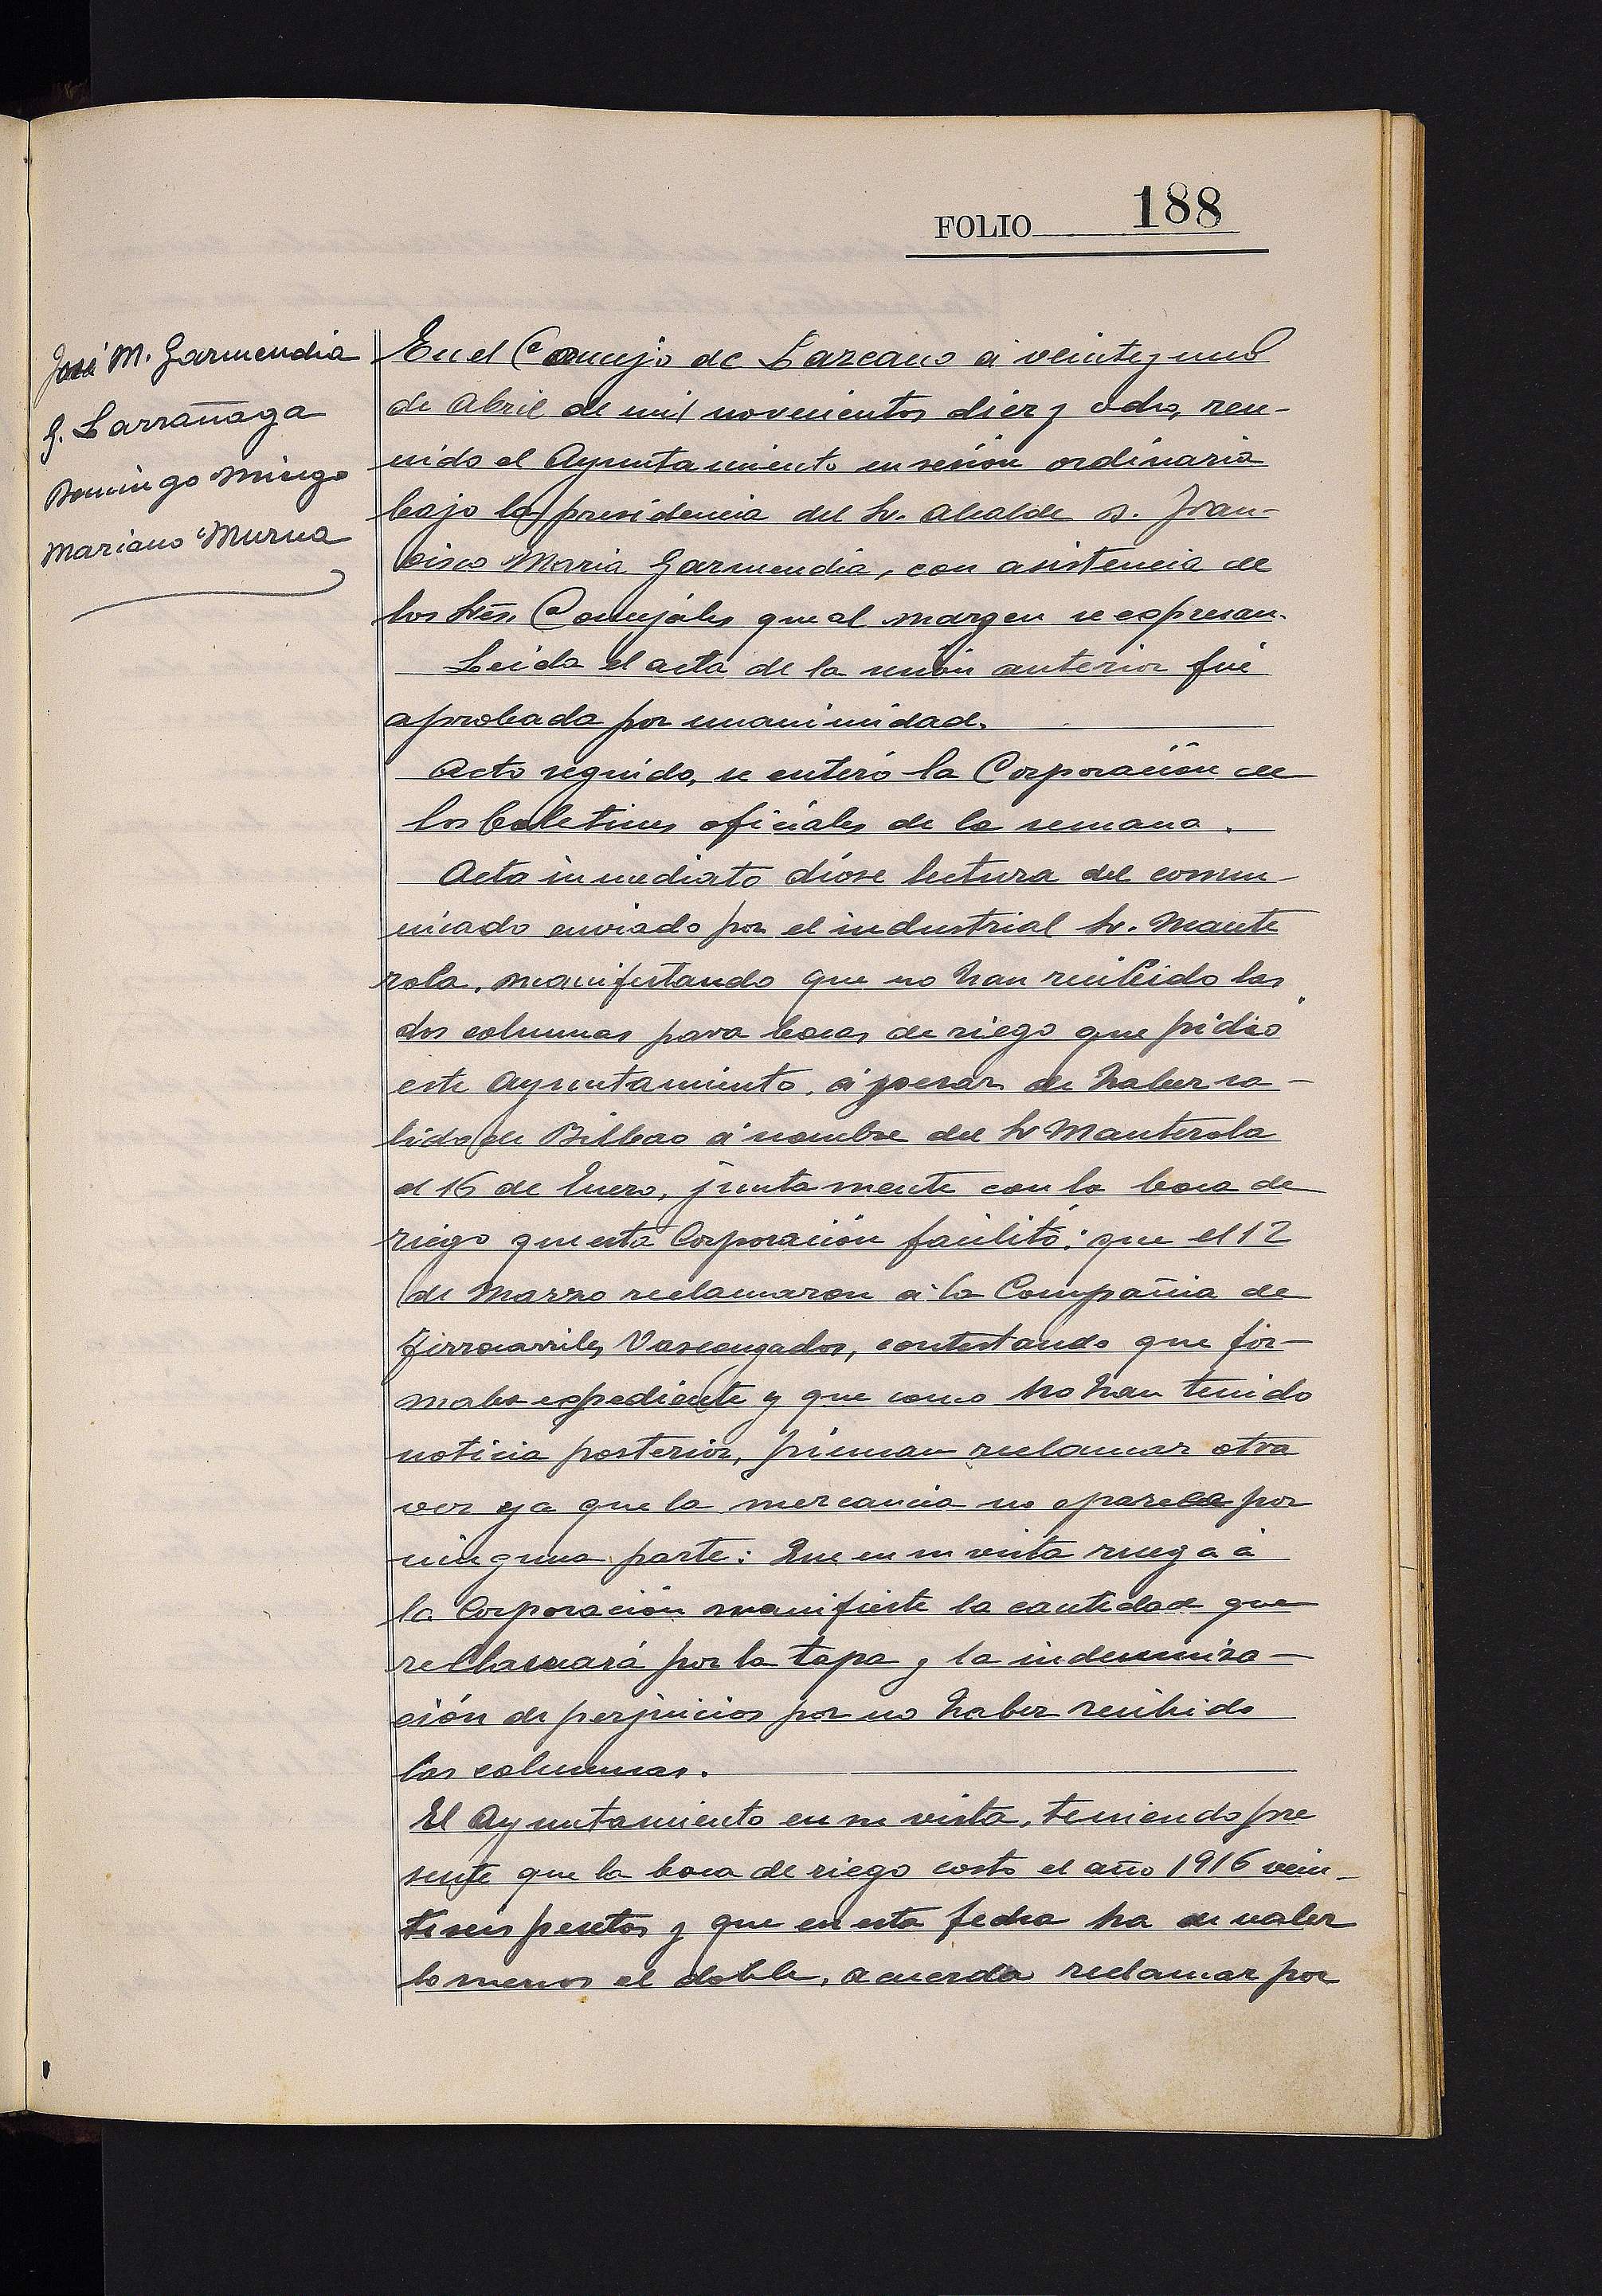 FOLIO 188
José M. Garmendia
G. Larrañaga
Domingo Mingo
Mariano Murua
En el Concejo de Lazcano á veinte y uno
de Abril de mil novecientos diez y ocho, reu-
nido el Ayuntamiento en sesión ordinaria
bajo la presidencia del Sr. Alcalde D. Fran-
cisco Maria Garmendia, con asistencia de
los Sres. Concejales que al margen se expresan.
Leida el acta de la sesión anterior fué
aprobada por unanimidad.
Acto seguido, se enteró la Corporación de
los boletines oficiales de la semana.
Acto inmediato dióse lectura del comu-
nicado enviado por el industrial Sr. Mante
rola, manifestando que no han recibido las
dos columnas para bocas de riego que pidió
este Ayuntamiento, á pesar de haber sa-
lido de Bilbao á nombre del Sr Manterola
el 16 de Enero, juntamente con la boca de
riego que esta Corporación facilitó: que el 12
de Marzo reclamaron á la Compañia de
Ferrocarriles Vascongados, contestando que for-
maba expediente y que como no han tenido
noticia posterior, piensan reclamar otra
vez ya que la mercancia no aparece por
ninguna parte: Que en su vista ruega á
la Corporación manifieste la cantidad que
recllamará por la tapa y la indemniza-
ción de perjuicios por no haber recibido
las columnas.
El Ayuntamiento en su vista, teniendo pre
sente que la boca de riego costo el año 1916 vein-
tiseis pesetas y que en esta fecha ha de valer
lo menos el doble, acuerda reclamar por